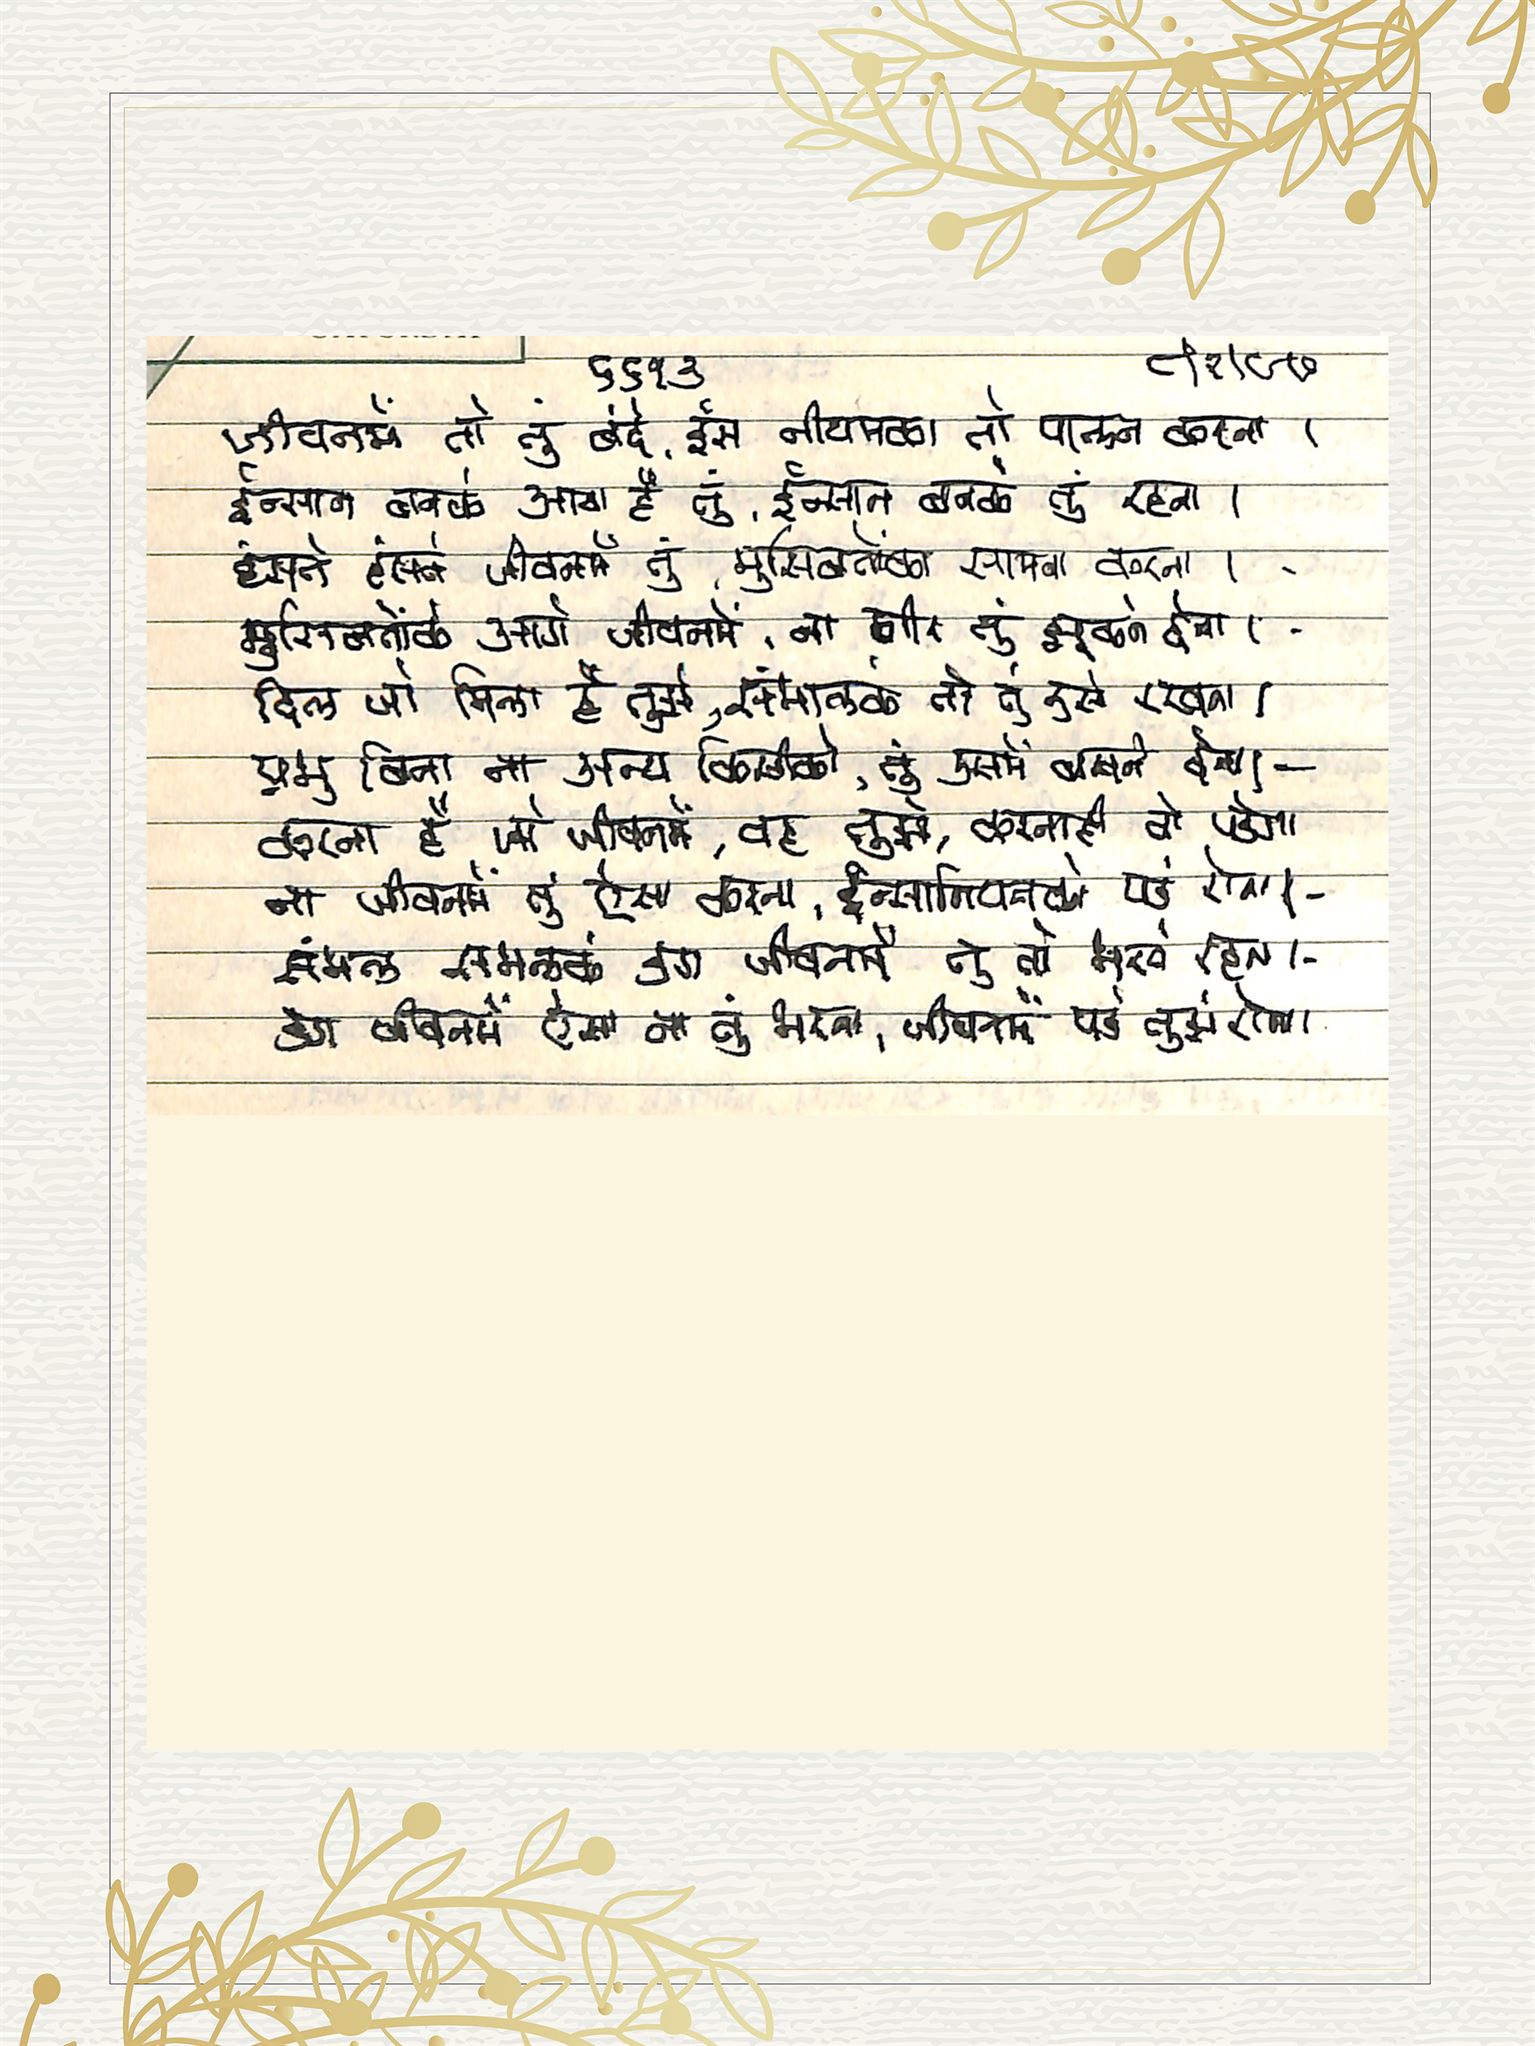 ६६१३
जीवनमें तो तुं बंदे, ईस नीयमका तो पालन करना ।
ईन्सान बनके आया है तुं, ईन्सान बनके तुं रहना ।
हंसते हंसते जीवनमें तुं, मुसिबतोंका सामना करना । -
मुसिबतोंके आगे जीवनमें, ना शीर तुं झूकने देना । -
दिल जो मिला है तुझे, संभालके तो तुं उसे रखना ।
प्रभु बिना ना अन्य किसीको, तुं उसमें बसने देना । -
करना है जो जीवनमें, वह तुझे, करनाही तो पडेगा
ना जीवनमें तुं ऐसा करना, ईन्सानियतको पडे रोना । -
संभल संभलके डग जीवनमें तु तो भरते रहना । -
डग जीवनमें ऐसा ना तुं भरना, जीवनमें पडे तुझे रोना ।